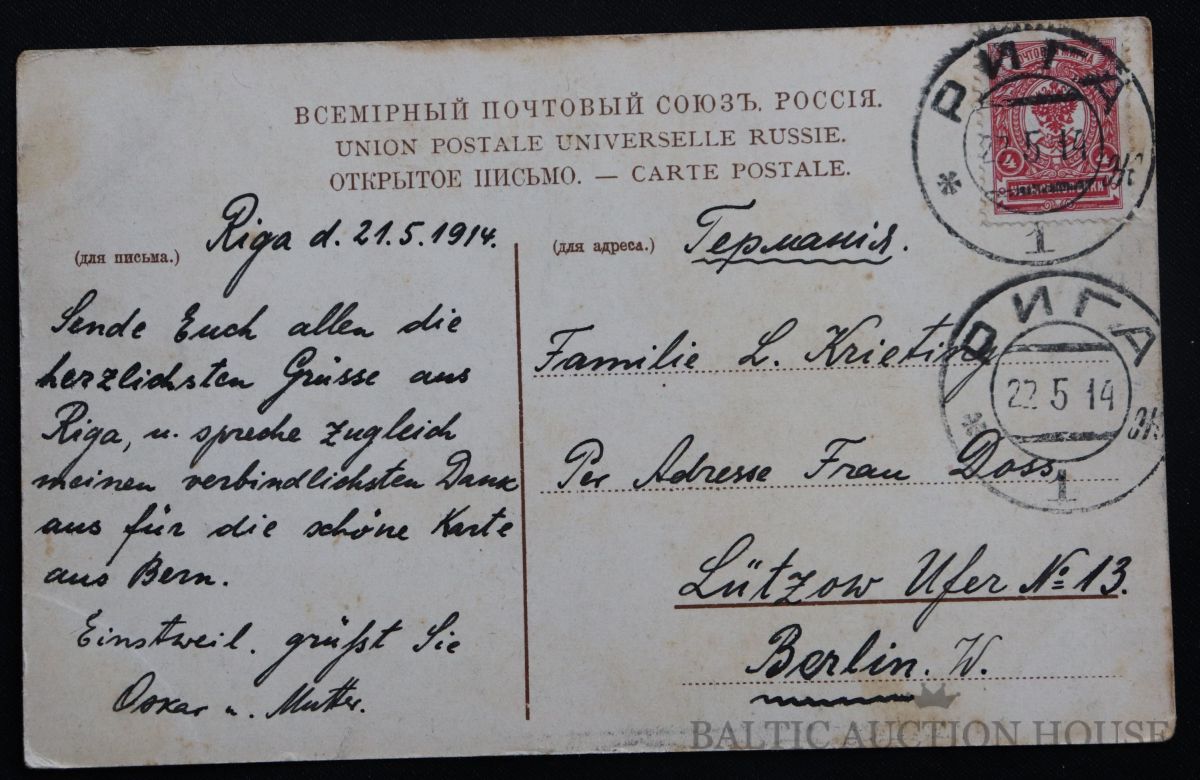 ВСЕМІРНЫЙ ПОЧТОВЫЙ СОЮЗЪ. РОССІЯ.
UNION POSTALE UNIVERSELLE RUSSIE.
ОТКРЫТОЕ ПИСЬМО. — CARTE POSTALE.
(для письма.)
Riga d. 21.5.1914.
Sende Euch allen die
herzlichsten Grüsse aus
Riga, u. spreche zugleich
meinen verbindlichsten Dank
aus für die schöne Karte
aus Bern.
Einstweil. grüßt Sie
Oskar u. Mutter.
(для адреса.)
Германія.
Familie L. Krieting
Per Adresse Frau Doss
Lützow Ufer № 13.
Berlin. W.
РИГА
22 5 14
1
4 4
РИГА
22 5 14
1
BALTIC AUCTION HOUSE